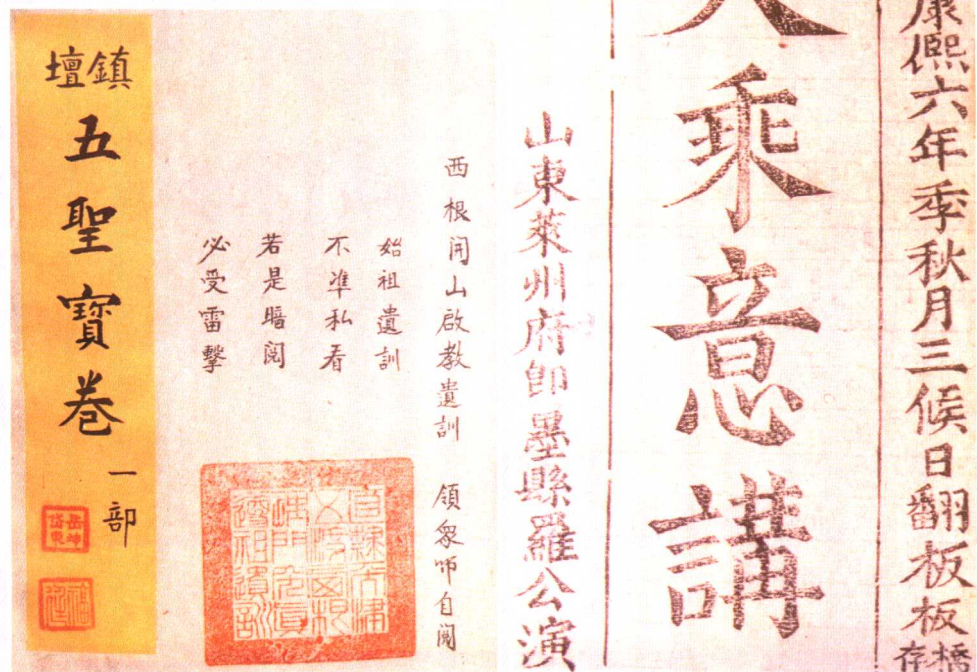 康熙六年季秋月三候日翻板板存
大乘意講
山東萊州府即墨縣羅公演
西根開山啟教遺訓 領衆師自閱
始祖遺訓
不準私看
若是暗閱
必受雷擊
鎮壇
五聖寶卷
一部